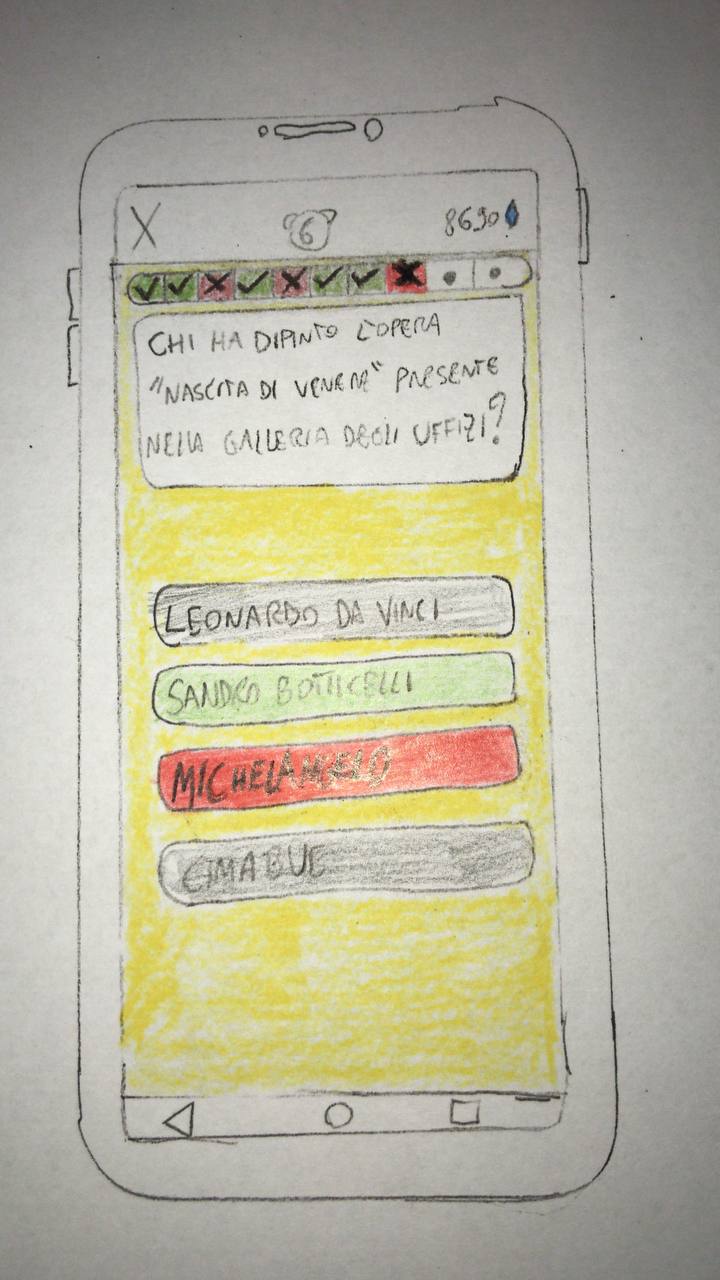 X
6
8690
CHI HA DIPINTO L'OPERA
"NASCITA DI VENERE" PRESENTE
NELLA GALLERIA DEGLI UFFIZI?
LEONARDO DA VINCI
SANDRO BOTTICELLI
MICHELANGELO
CIMABUE